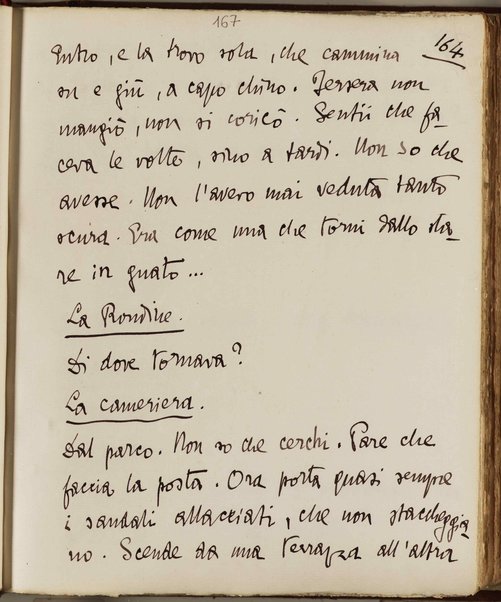 167
164
Entro, e la trovo sola, che cammina
su e giù, a capo chino. Iersera non
mangiò, non si coricò. Sentii che fa-
ceva le volte, sino a tardi. Non so che
avesse. Non l'avevo mai veduta tanto
scura. Era come una che torni dallo sta-
re in guato...
La Rondine.
Di dove tornava?
La cameriera.
Dal parco. Non so che cerchi. Pare che
faccia la posta. Ora porta quasi sempre
i sandali allacciati, che non staccheggia
no. Scende da una terrazza all'altra